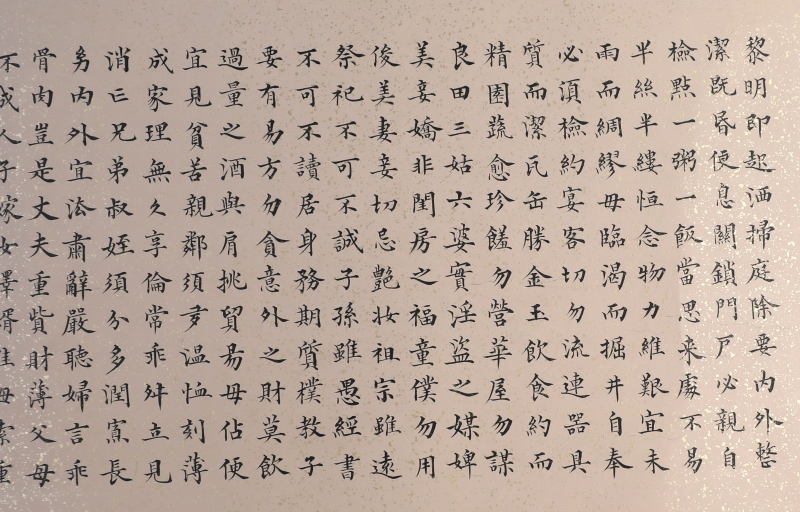 黎明即起洒掃庭除要内外整
潔既昏便息關鎖門戶必親自
檢點一粥一飯當思来處不易
半絲半縷恒念物力維艱宜未
雨而綢繆毋臨渴而掘井自奉
必須檢約宴客切勿流連器具
質而潔瓦缶勝金玉飲食約而
精園蔬愈珍饈勿營華屋勿謀
良田三姑六婆實淫盜之媒婢
美妾嬌非閨房之福童僕勿用
俊美妻妾切忌艷妝祖宗雖遠
祭祀不可不誠子孫雖愚經書
不可不讀居身務期質樸教子
要有易方勿貪意外之財莫飲
過量之酒與肩挑貿易毋佔便
宜見貧苦親鄰須多温恤刻薄
成家理無久享倫常乖舛立見
消亡兄弟叔姪須分多潤寡長
幼内外宜法肅辭嚴聽婦言乖
骨肉豈是丈夫重貲財薄父母
不成人子嫁女擇婿佳毋索重